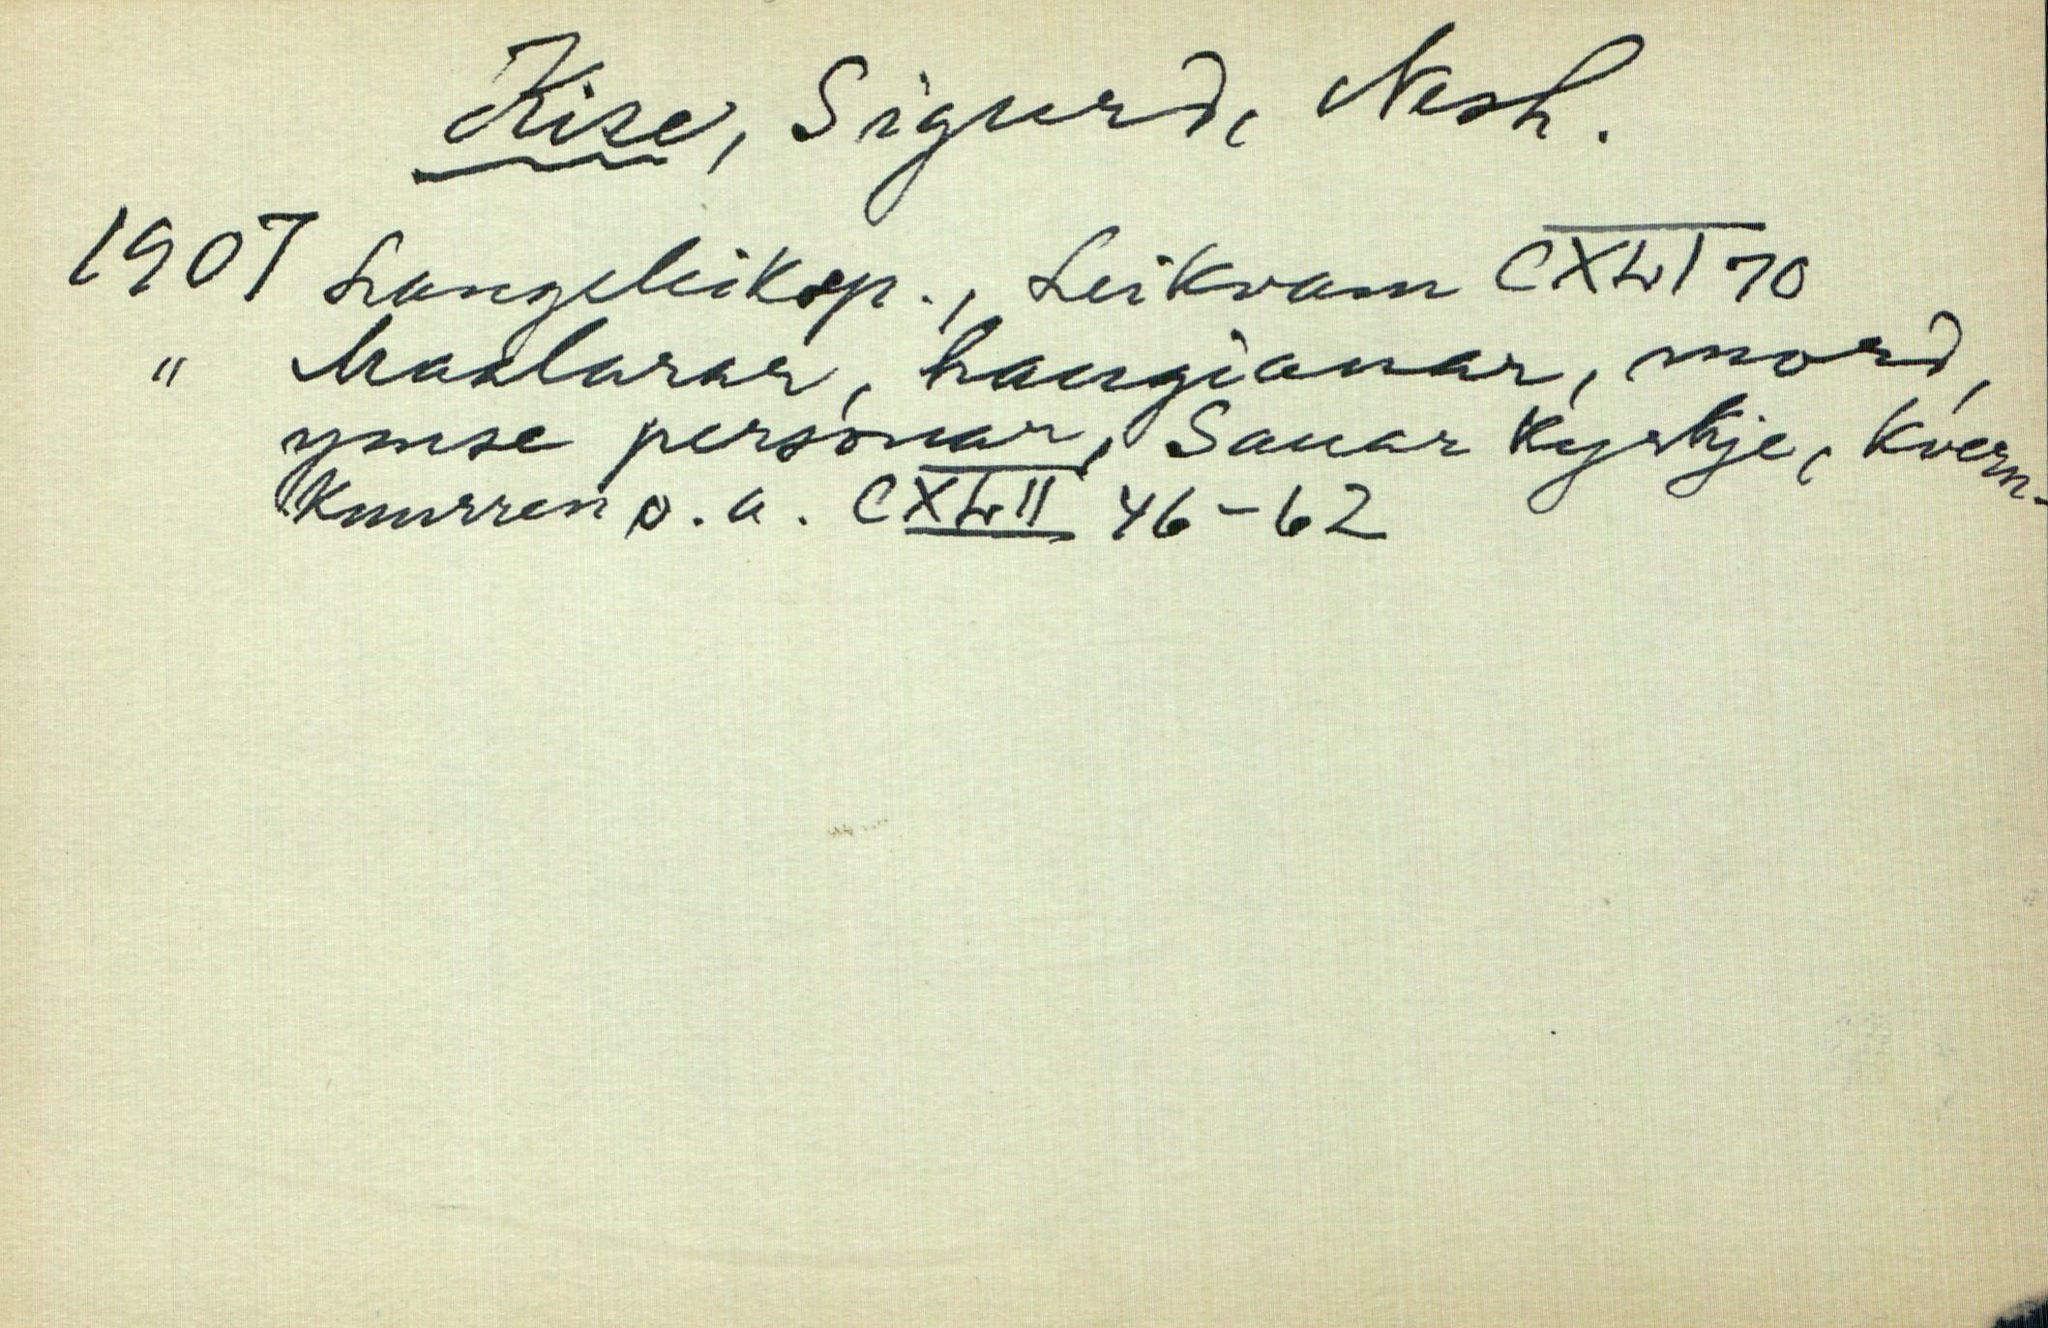 Kise, Sigurd, Nesh.
1907 Langeleiksp., Leikvam CXLI 70
" Maalarar, haugianar, mord,
ymse personar, Sauar kyrkje, Kvern-
knurren o.a. CXLII 46-62